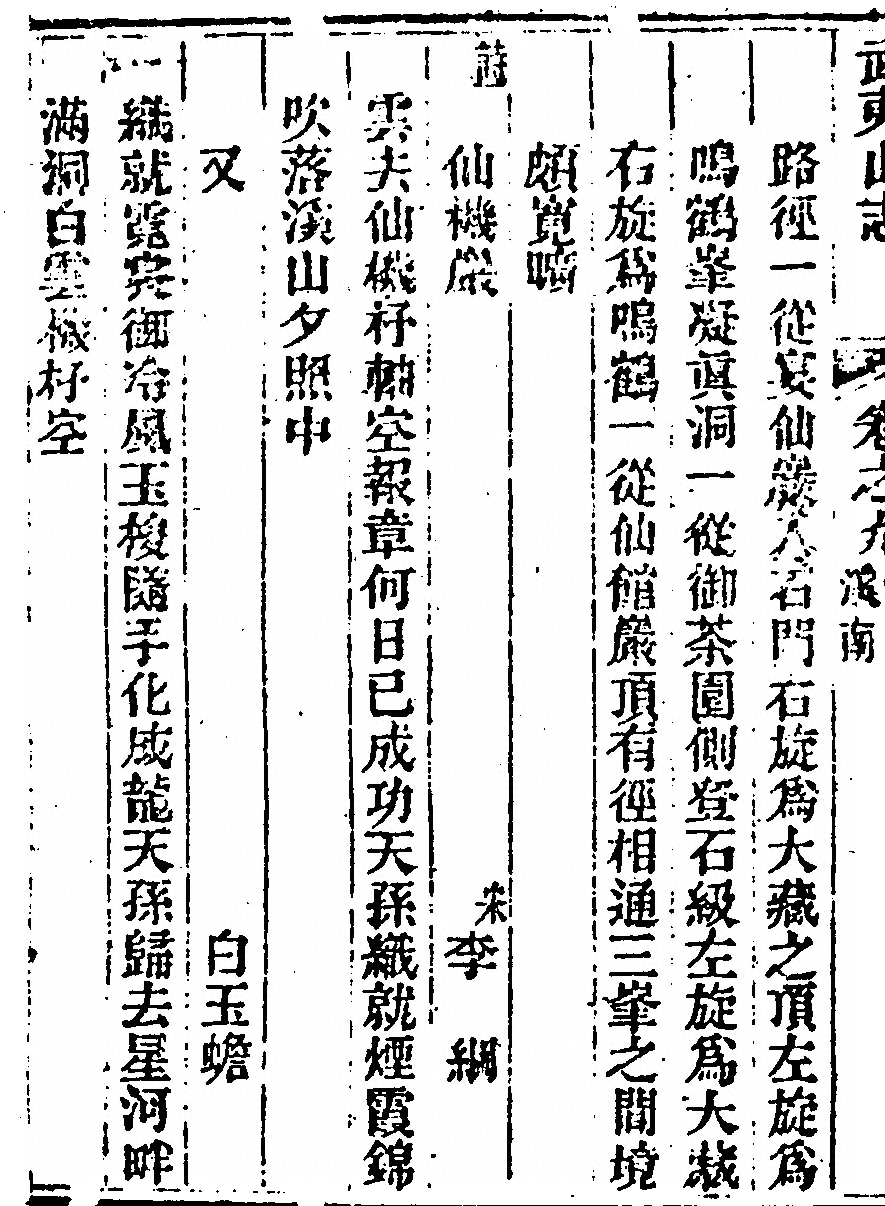 武夷山志 卷之九 溪南
路徑一從宴仙巖入石門右旋爲大藏之頂左旋爲
鳴鶴峯凝眞洞一從御茶園側登石級左旋爲大藏
右旋爲鳴鶴一從仙館巖頂有徑相通三峯之間境
頗寬曠
詩
仙機巖 宋 李 綱
雲夫仙機杼軸空報章何日已成功天孫織就煙霞錦
吹落溪山夕照中
又 白玉蟾
織就霓裳御冷風玉梭隨手化成龍天孫歸去星河畔
滿洞白雲機杼空